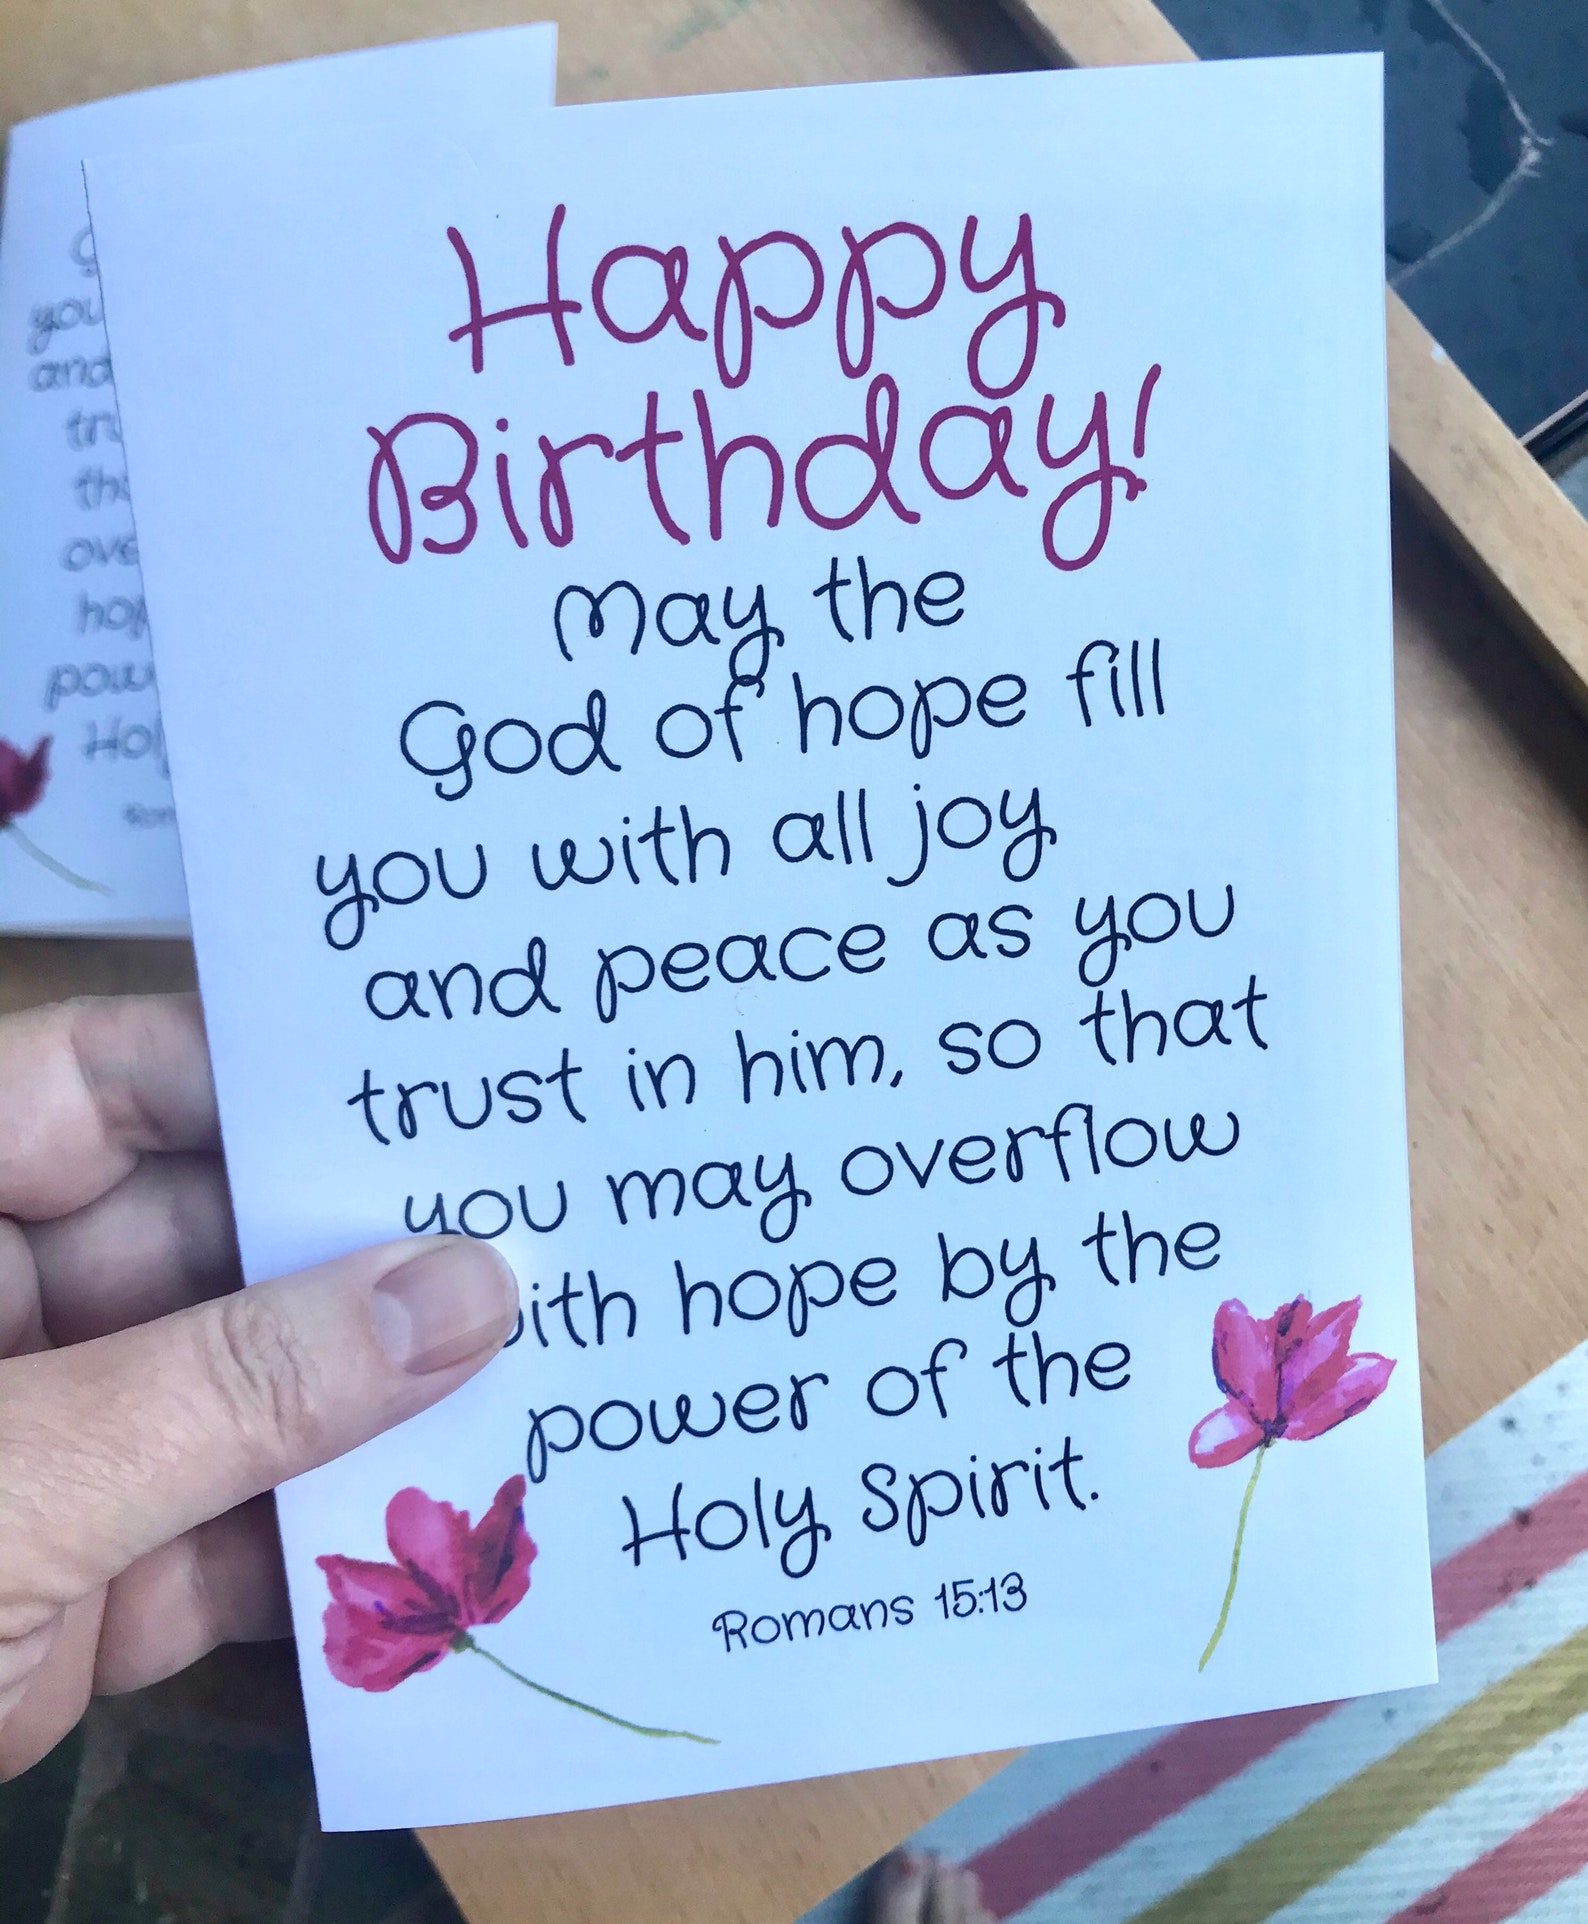 Happy
Birthday!
May the
God of hope fill
you with all joy
and peace as you
trust in him, so that
you may overflow
with hope by the
power of the
Holy Spirit.
Romans 15:13
you
and